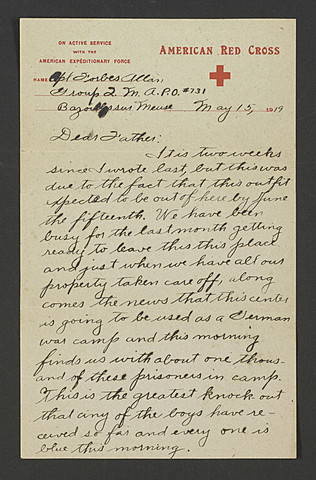 ON ACTIVE SERVICE
WITH THE
AMERICAN EXPEDITIONARY FORCE
AMERICAN RED CROSS
NAME Cpl Forbes Allan
Group 2 M.A. P.O. #731
Bazoilles sur Meuse May 15, 1919
Dear Father:
It is two weeks
since I wrote last, but this was
due to the fact that this outfit
xpected to be out of here by June
the fifteenth. We have been
busy for the last month getting
ready to leave this this place
and just when we have all our
property taken care off, along
comes the news that this center
is going to be used as a German
war camp and this morning
finds us with about one thous-
and of these prisoners in camp.
This is the greatest knock out
that any of the boys have re-
ceived so far and every one is
blue this morning.